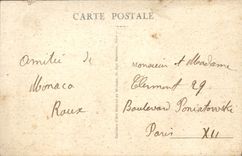 CARTE POSTALE
Amitiés de
Monaco
Roux
Monsieur et Madame
Clermont 29
Boulevard Poniatowski
Paris XII